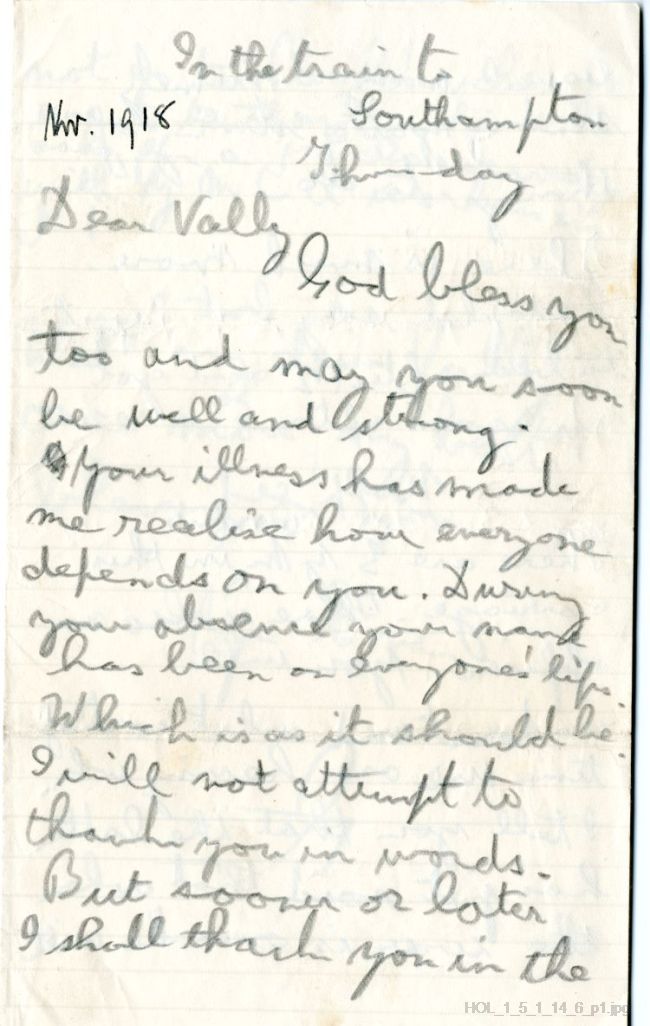 In the train to
Southampton
Nov. 1918
Thursday
Dear Vally
God bless you
too and may you soon
be well and strong.
Your illness has made
me realise how everyone
depends on you. During
your absence your name
has been on everyone's lips.
Which is as it should be.
I will not attempt to
thank you in words.
But sooner or later
I shall thank you in the
HOL_1_5_1_14_6_p1.jpg